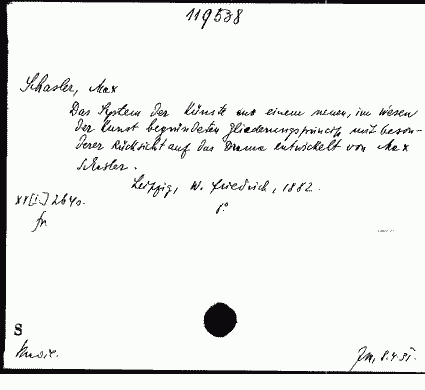 119538
Schasler, Max
Das System der Künste aus einem neuen, im Wesen
der Kunst begründeten Gliederungsprincip mit beson-
derer Rücksicht auf das Drama entwickelt von Max
Schasler.
Leipzig, W. Friedrich, 1882.
8°
2640.
S
Music.
8.4.31.